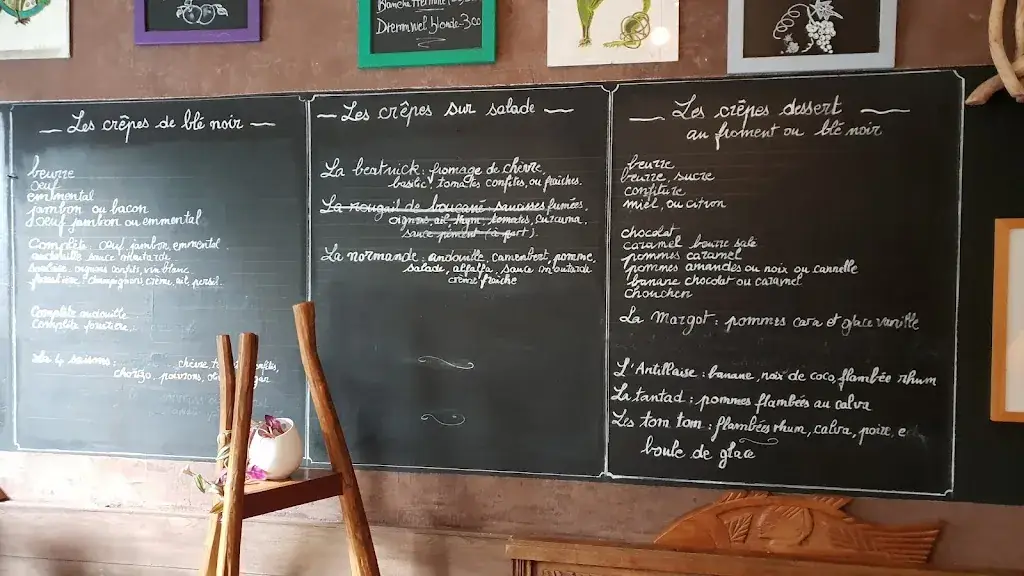 Blanche Hermine
Dremmwel blonde-3co
Les crêpes de blé noir
beurre
oeuf
emmental
jambon ou bacon
œuf jambon ou emmental
Complète œuf, jambon, emmental
andouille sauce moutarde
oignons confits, vin blanc
forestière: champignons crème, ail, persil.
Complète andouille
Complète forestière
Les 4 saisons: chèvre
chorizo, poivrons,
Les crêpes sur salade
La beatnick: fromage de chèvre,
basilic tomates confites, ou fraîches.
La rougail de boucané saucisses fumées,
oignons, ail, thym, tomates, curcuma,
sauce piment (à part).
La normande: andouille, camembert, pomme,
salade, alfalfa, sauce moutarde
crème fraîche
Les crêpes dessert
au froment ou blé noir
beurre
beurre, sucre
confiture
miel, ou citron
chocolat
caramel beurre salé
pommes caramel
pommes amandes ou noix ou cannelle
banane chocolat ou caramel
chouchen
La Margot: pommes cara et glace vanille
L'Antillaise: banane, noix de coco, flambée rhum
La tantad: pommes flambées au calva
Les tom tom: flambées rhum, calva, poire,
boule de glace